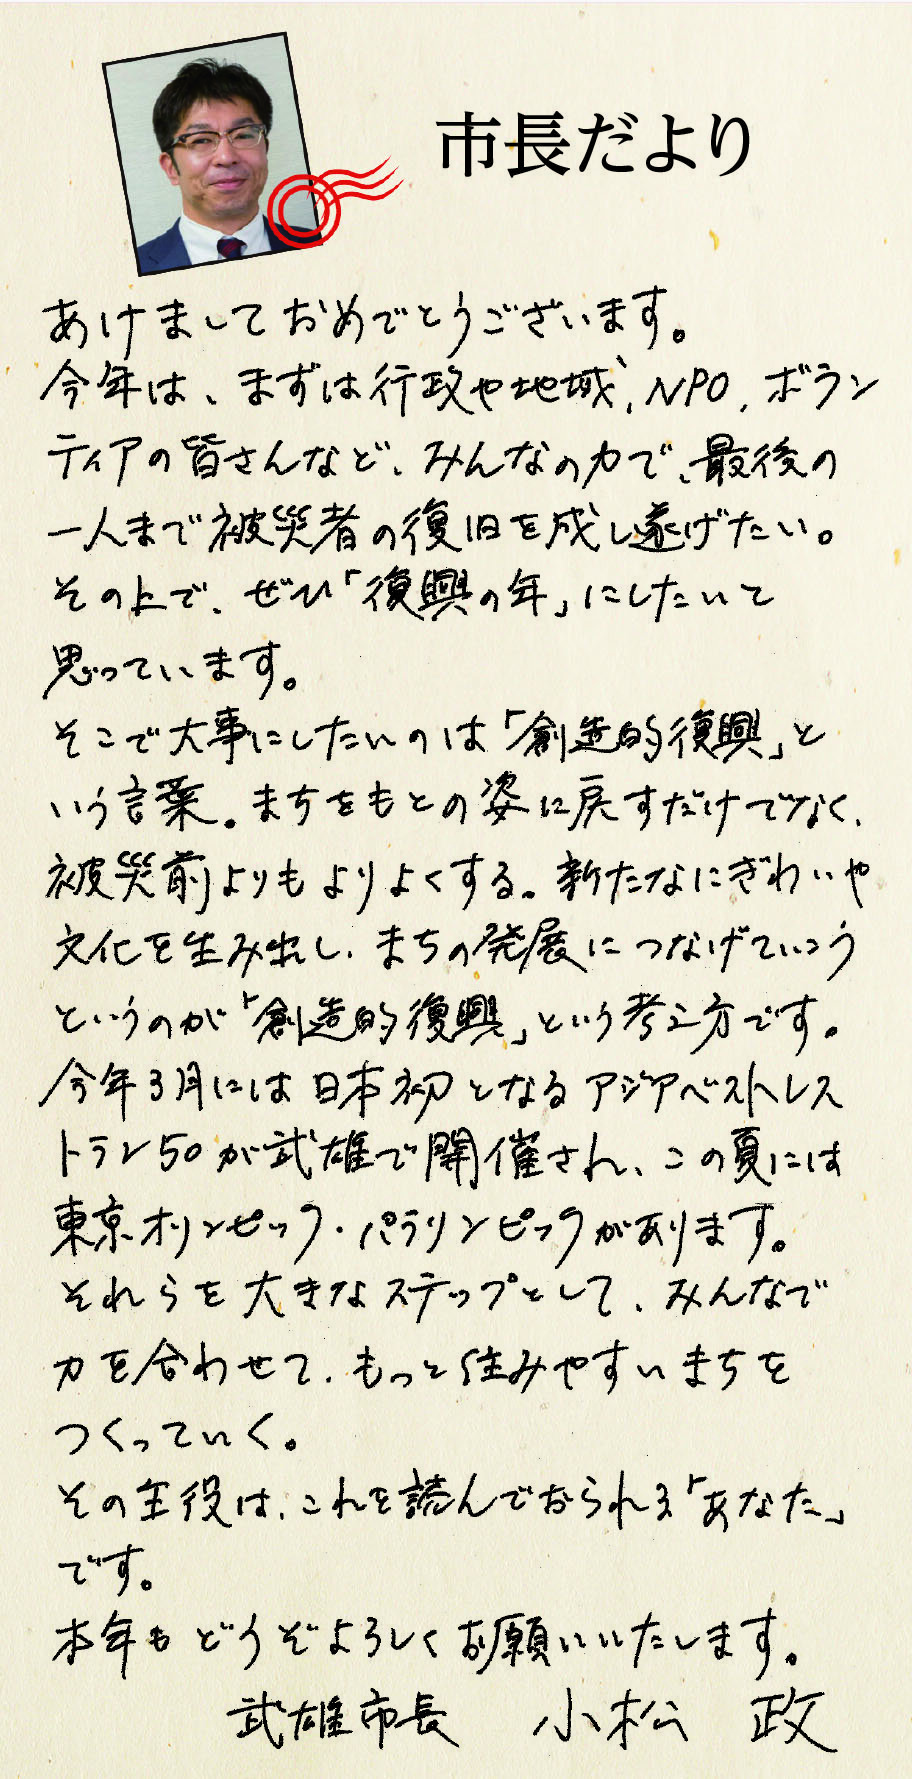 市長だより
あけましておめでとうございます。
今年は、まずは行政や地域、NPO、ボラン
ティアの皆さんなど、みんなの力で、最後の
一人まで被災者の復旧を成し遂げたい。
その上で、ぜひ「復興の年」にしたいと
思っています。
そこで大事にしたいのは「創造的復興」と
いう言葉。まちをもとの姿に戻すだけでなく、
被災前よりもよりよくする。新たなにぎわいや
文化を生み出し、まちの発展につなげていこう
というのが「創造的復興」という考え方です。
今年3月には日本初となるアジアベストレス
トラン50が武雄で開催され、この夏には
東京オリンピック・パラリンピックがあります。
それらを大きなステップとして、みんなで
力を合わせて、もっと住みやすいまちを
つくっていく。
その主役は、これを読んでおられる「あなた」
です。
本年もどうぞよろしくお願いいたします。
武雄市長 小松 政